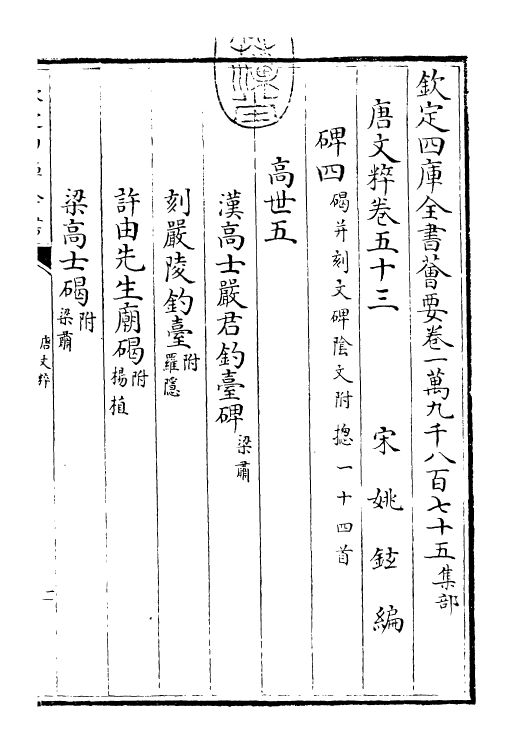 欽定四庫全書薈要卷一萬九千八百七十五集部
唐文粹卷五十三 宋姚鉉編
碑四碣并刻文碑陰文附摠一十四首
高世五
漢高士嚴君釣臺碑梁肅
刻嚴陵釣臺附羅隱
許由先生廟碣附楊植
梁高士碣附梁肅
唐文粹